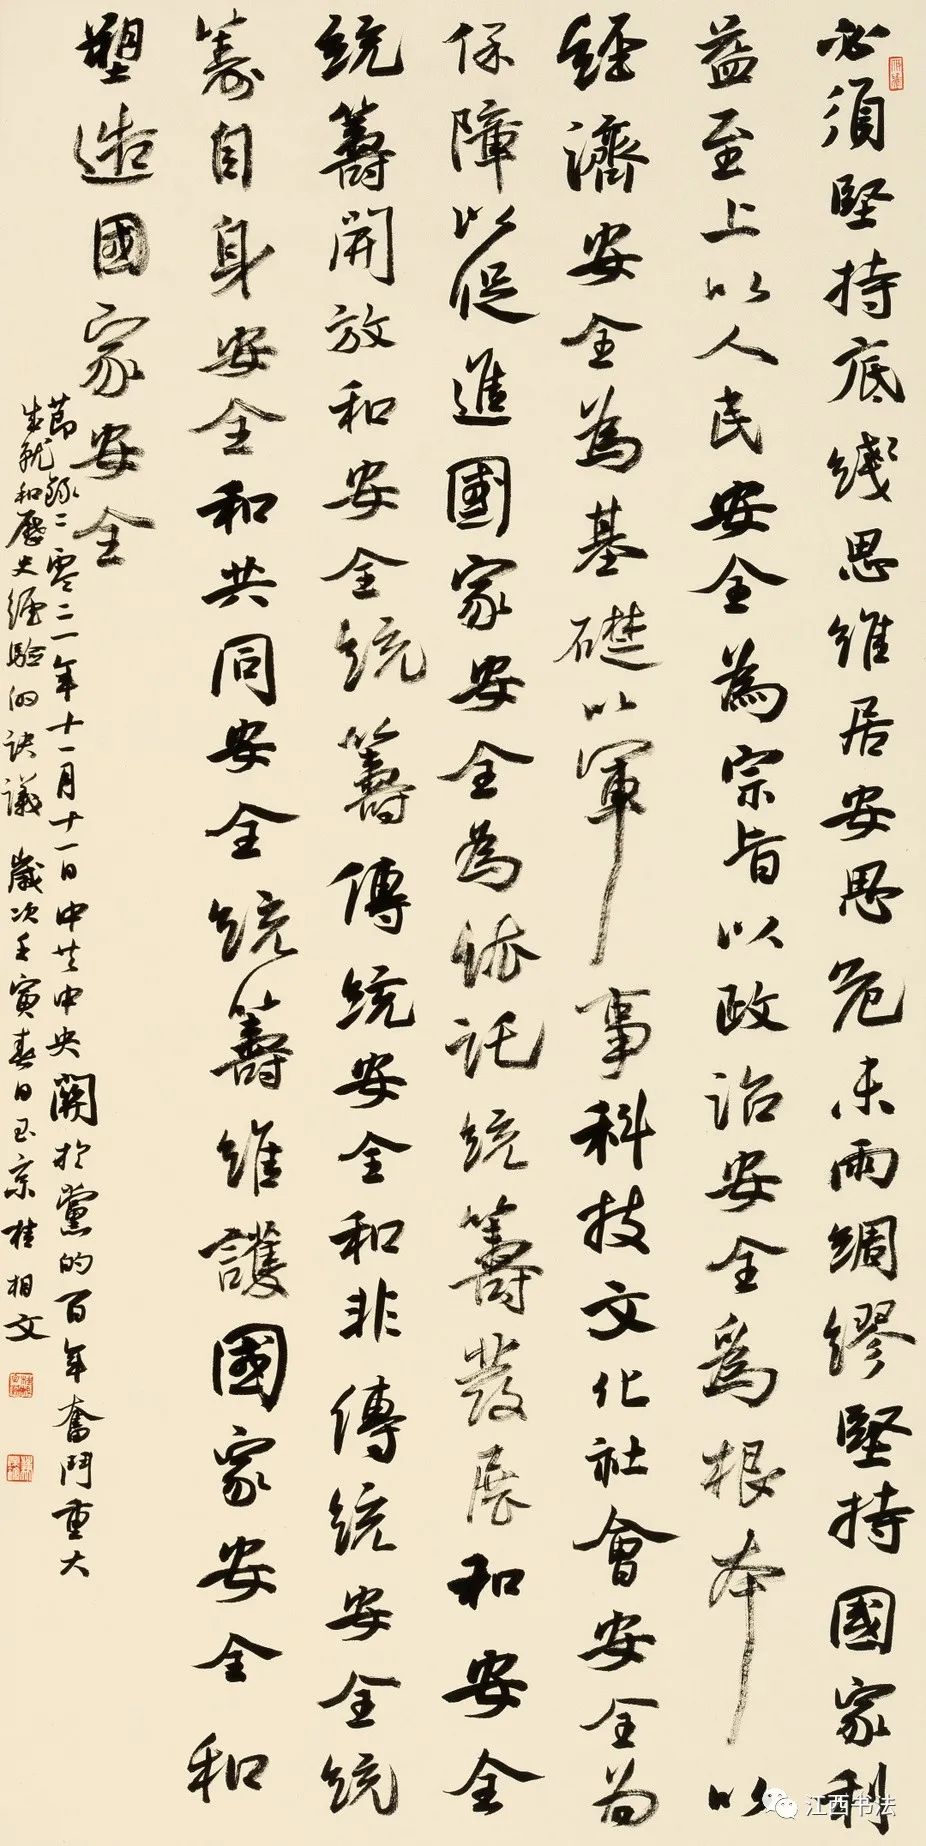 必須堅持底綫思維居安思危未雨綢繆堅持國家利
益至上以人民安全為宗旨以政治安全為根本以
經濟安全為基礎以軍事科技文化社會安全為
保障以促進國家安全為依託統籌發展和安全
統籌開放和安全統籌傳統安全和非傳統安全統
籌自身安全和共同安全統籌維護國家安全和
塑造國家安全
節錄二零二一年十一月十一日中共中央關於黨的百年奮鬥重大
成就和歷史經驗的決議 歲次壬寅春日玉京桂相文
江西书法